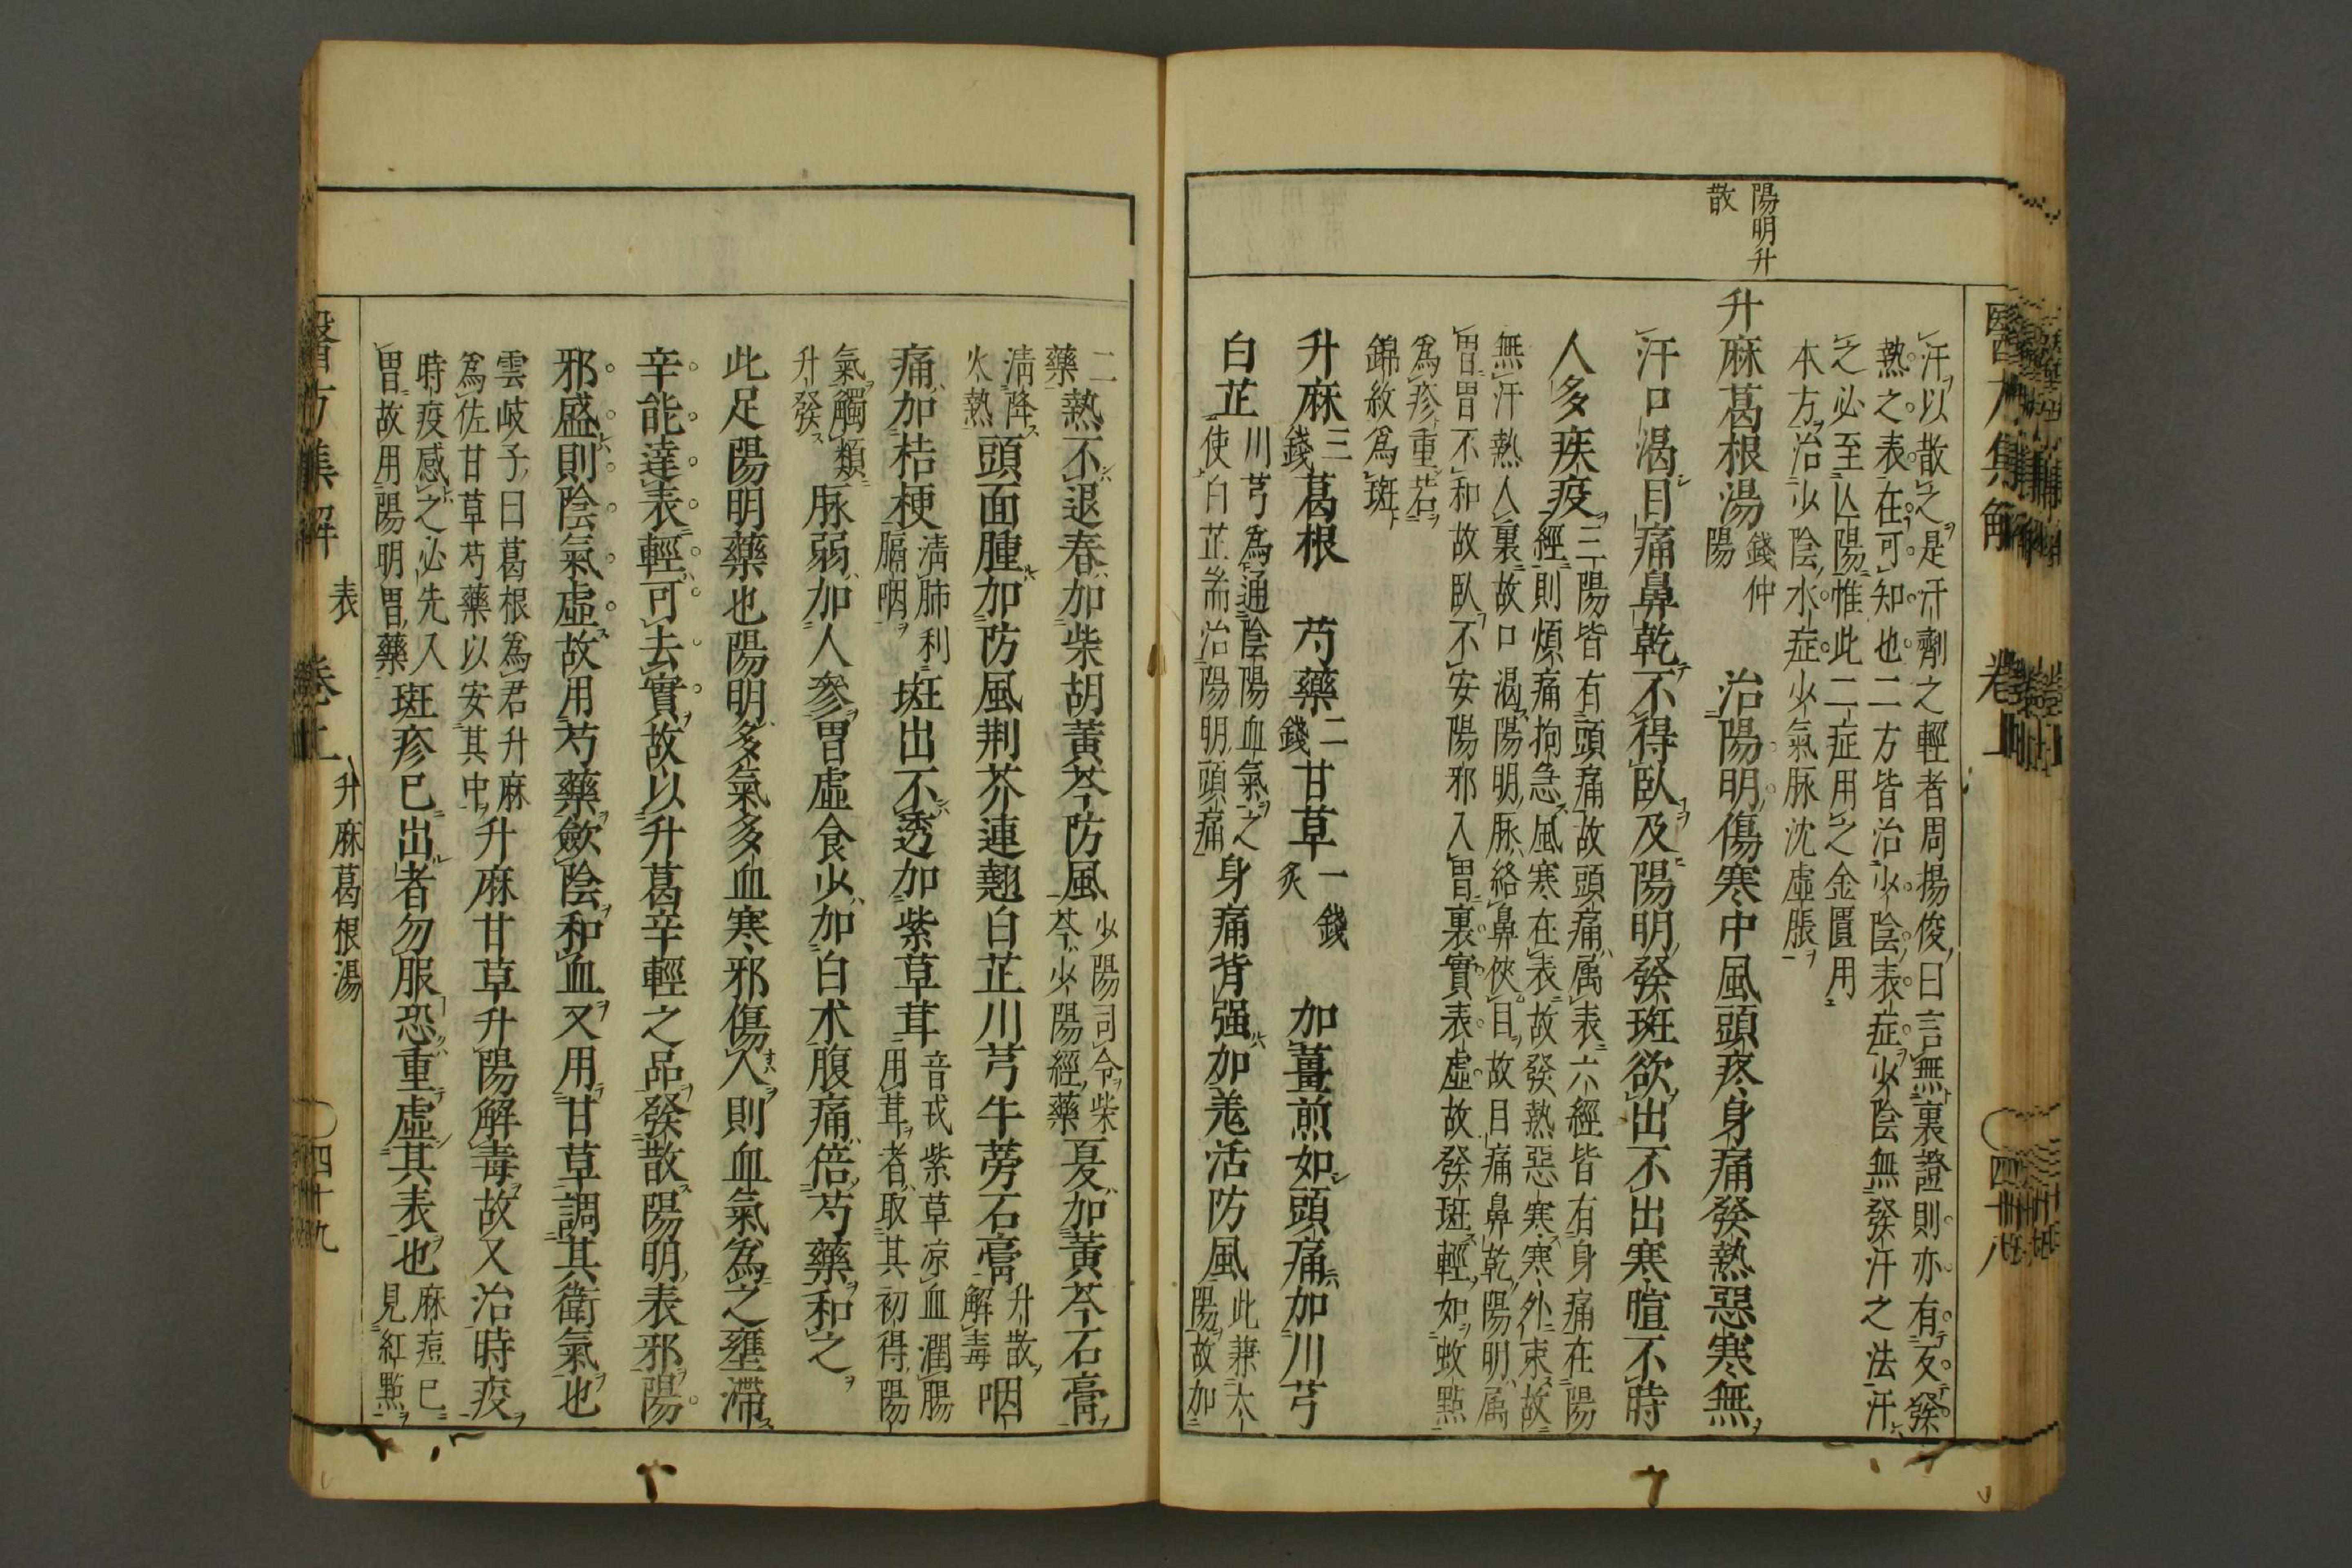 醫方集解 卷上 四十八
陽明升
散
汗以散之是汗劑之輕者周揚俊曰言無裏證則亦有反發
熱之表在可知也二方皆治少陰表症少陰無發汗之法汗
之必至亾陽惟此二症用之金匱用
本方治少陰水症少氣脉沈虛脹
升麻葛根湯 錢仲
陽 治陽明傷寒中風頭疼身痛發熱惡寒無
汗口渴目痛鼻乾不得臥及陽明發斑欲出不出寒暄不時
人多疾疫 三陽皆有頭痛故頭痛属表六經皆有身痛在陽
經則煩痛拘急風寒在表故發熱惡寒寒外束故
無汗熱入裏故口渴陽明脉絡鼻俠目故目痛鼻乾陽明属
胃胃不和故臥不安陽邪入胃裏實表虛故發斑輕如蚊點
爲疹重若
錦紋爲斑
升麻 三
錢 葛根 芍藥 二
錢 甘草 一錢
炙 加薑煎如頭痛加川芎
白芷 川芎爲通陰陽血氣之
使白芷耑治陽明頭痛 身痛背强加羌活防風 此兼太
陽故加
二
藥 熱不退春加柴胡黃芩防風 少陽司令柴
芩少陽經藥 夏加黃芩石膏
淸降
火熱 頭面腫加防風荆芥連翹白芷川芎牛蒡石膏 升散
解毒 咽
痛加桔梗 淸肺利
膈咽 斑出不透加紫草茸 音戎紫草凉血潤腸
用茸者取其初得陽
氣觸類
升發 脉弱加人參胃虛食少加白朮腹痛倍芍藥和之
此足陽明藥也陽明多氣多血寒邪傷人則血氣爲之壅滯
辛能達表輕可去實故以升葛辛輕之品發散陽明表邪陽
邪盛則陰氣虛故用芍藥歛陰和血又用甘草調其衛氣也
雲岐子曰葛根爲君升麻
爲佐甘草芍藥以安其中 升麻甘草升陽解毒故又治時疫
時疫感之必先入
胃故用陽明胃藥 斑疹已出者勿服恐重虛其表也 麻痘已
見紅點
醫方集解 表 卷上 升麻葛根湯 四十九